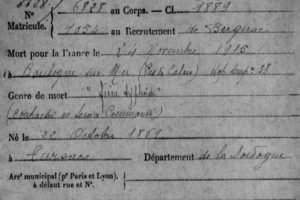 N° 6828 au Corps. — Cl. 1889
Matricule. 1154 au Recrutement de Bergerac
Mort pour la France le 24 Novembre 1915
à Boulogne sur Mer (Pas de Calais)
Genre de mort "Fièvre typhoïde"
(contractée en service Commandé)
Né le 22 Octobre 1869
à Département de la Dordogne
Arr' municipal (p' Paris et Lyon),
à défaut rue et N°.